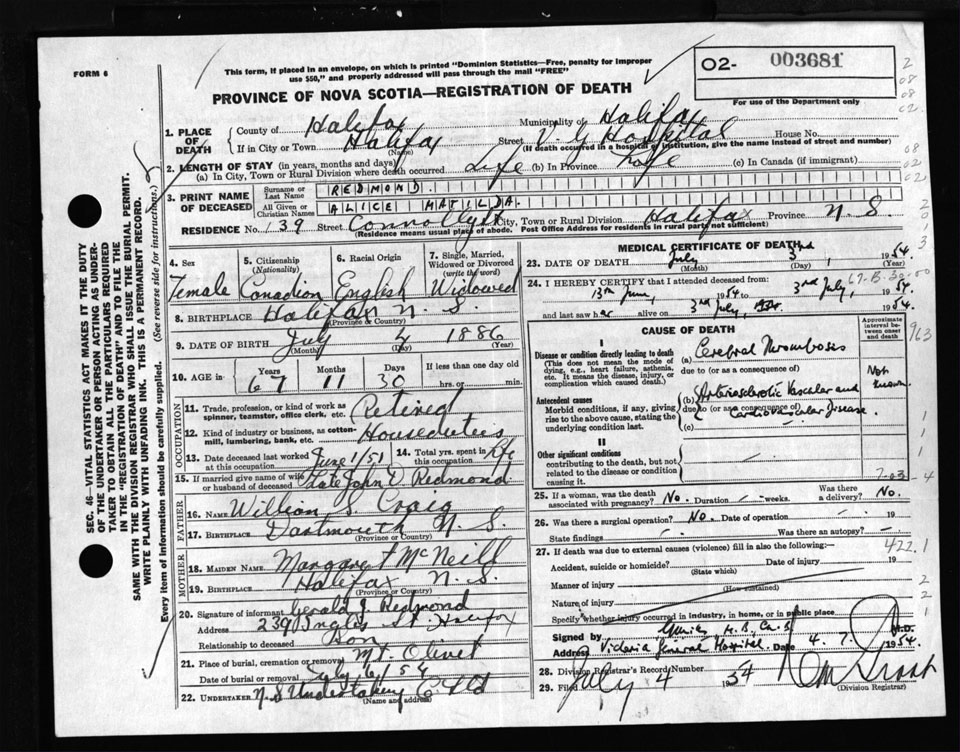 FORM 6
This form, if placed in an envelope, on which is printed "Dominion Statistics—Free, penalty for improper
use $50," and properly addressed will pass through the mail "FREE"
O2- 003681
For use of the Department only
PROVINCE OF NOVA SCOTIA—REGISTRATION OF DEATH
1. PLACE OF DEATH
County of Halifax Municipality of Halifax
If in City or Town Halifax Street V. G Hospital House No.
(Name) (If death occurred in a hospital or institution, give the name instead of street and number)
2. LENGTH OF STAY (in years, months and days)
(a) In City, Town or Rural Division where death occurred Life (b) In Province Life (c) In Canada (if immigrant)
3. PRINT NAME OF DECEASED
Surname or Last Name REDMOND.
All Given or Christian Names ALICE MATILDA.
RESIDENCE No. 139 Street Connolly St City, Town or Rural Division Halifax Province N. S.
(Residence means usual place of abode. Post Office Address for residents in rural parts not sufficient)
4. Sex Female
5. Citizenship (Nationality) Canadian
6. Racial Origin English
7. Single, Married, Widowed or Divorced (write the word) Widowed
8. BIRTHPLACE Halifax N. S.
(Province & Country)
9. DATE OF BIRTH July 4 1886
(Month) (Day) (Year)
10. AGE in Years 67 Months 11 Days 30 If less than one day old hrs. or min.
OCCUPATION
11. Trade, profession, or kind of work as spinner, teamster, office clerk, etc. Retired
12. Kind of industry or business, as cotton-mill, lumbering, bank, etc. Houseduties
13. Date deceased last worked at this occupation June 1/51 14. Total yrs. spent in this occupation Life
15. If married give name of wife or husband of deceased late John D Redmond
FATHER
16. NAME William S. Craig
17. BIRTHPLACE Dartmouth N. S.
(Province or Country)
MOTHER
18. MAIDEN NAME Margaret McNeill
19. BIRTHPLACE Halifax N. S.
(Province or Country)
20. Signature of informant Gerald J. Redmond
Address 239 Inglis St. Halifax
Relationship to deceased Son
21. Place of burial, cremation or removal Mt. Olivet
Date of burial or removal July 6/54
22. UNDERTAKER N. S Undertaking Co Ltd
(Name and address)
MEDICAL CERTIFICATE OF DEATH
23. DATE OF DEATH July 3rd 1954
(Month) (Day) (Year)
24. I HEREBY CERTIFY that I attended deceased from:
13th June, 1954 to 3rd July, 1954
and last saw her alive on 3rd July, 1954
CAUSE OF DEATH
Approximate interval between onset and death
I
Disease or condition directly leading to death
(This does not mean the mode of dying, e.g., heart failure, asthenia, etc. It means the disease, injury, or complication which caused death.)
(a) Cerebral Thrombosis
due to (or as a consequence of)
Not known
Antecedent causes
Morbid conditions, if any, giving rise to the above cause, stating the underlying condition last.
(b) Arteriosclerotic Vascular and
due to (or as a consequence of)
Cardiovascular Disease.
(c)
II
Other significant conditions
contributing to the death, but not related to the disease or condition causing it.
7-03-4
25. If a woman, was the death associated with pregnancy? No. Duration weeks. Was there a delivery? No.
26. Was there a surgical operation? No. Date of operation 19
State findings Was there an autopsy?
27. If death was due to external causes (violence) fill in also the following:—
422.1
Accident, suicide or homicide? Date of injury 19
(State which)
Manner of injury
(How sustained)
Nature of injury
Specify whether injury occurred in industry, in home, or in public place
Signed by M.D.
Address Victoria General Hospital. Date 4. 7. 1954
28. Division Registrar's Record Number
29. Filed July 4 1954
(Division Registrar)
SEC. 46—VITAL STATISTICS ACT MAKES IT THE DUTY
OF THE UNDERTAKER OR PERSON ACTING AS UNDER-
TAKER TO OBTAIN ALL THE PARTICULARS REQUIRED
IN THE "REGISTRATION OF DEATH" AND TO FILE THE
SAME WITH THE DIVISION REGISTRAR WHO SHALL ISSUE THE BURIAL PERMIT.
WRITE PLAINLY WITH UNFADING INK. THIS IS A PERMANENT RECORD.
Every item of information should be carefully supplied. (See reverse side for instructions.)